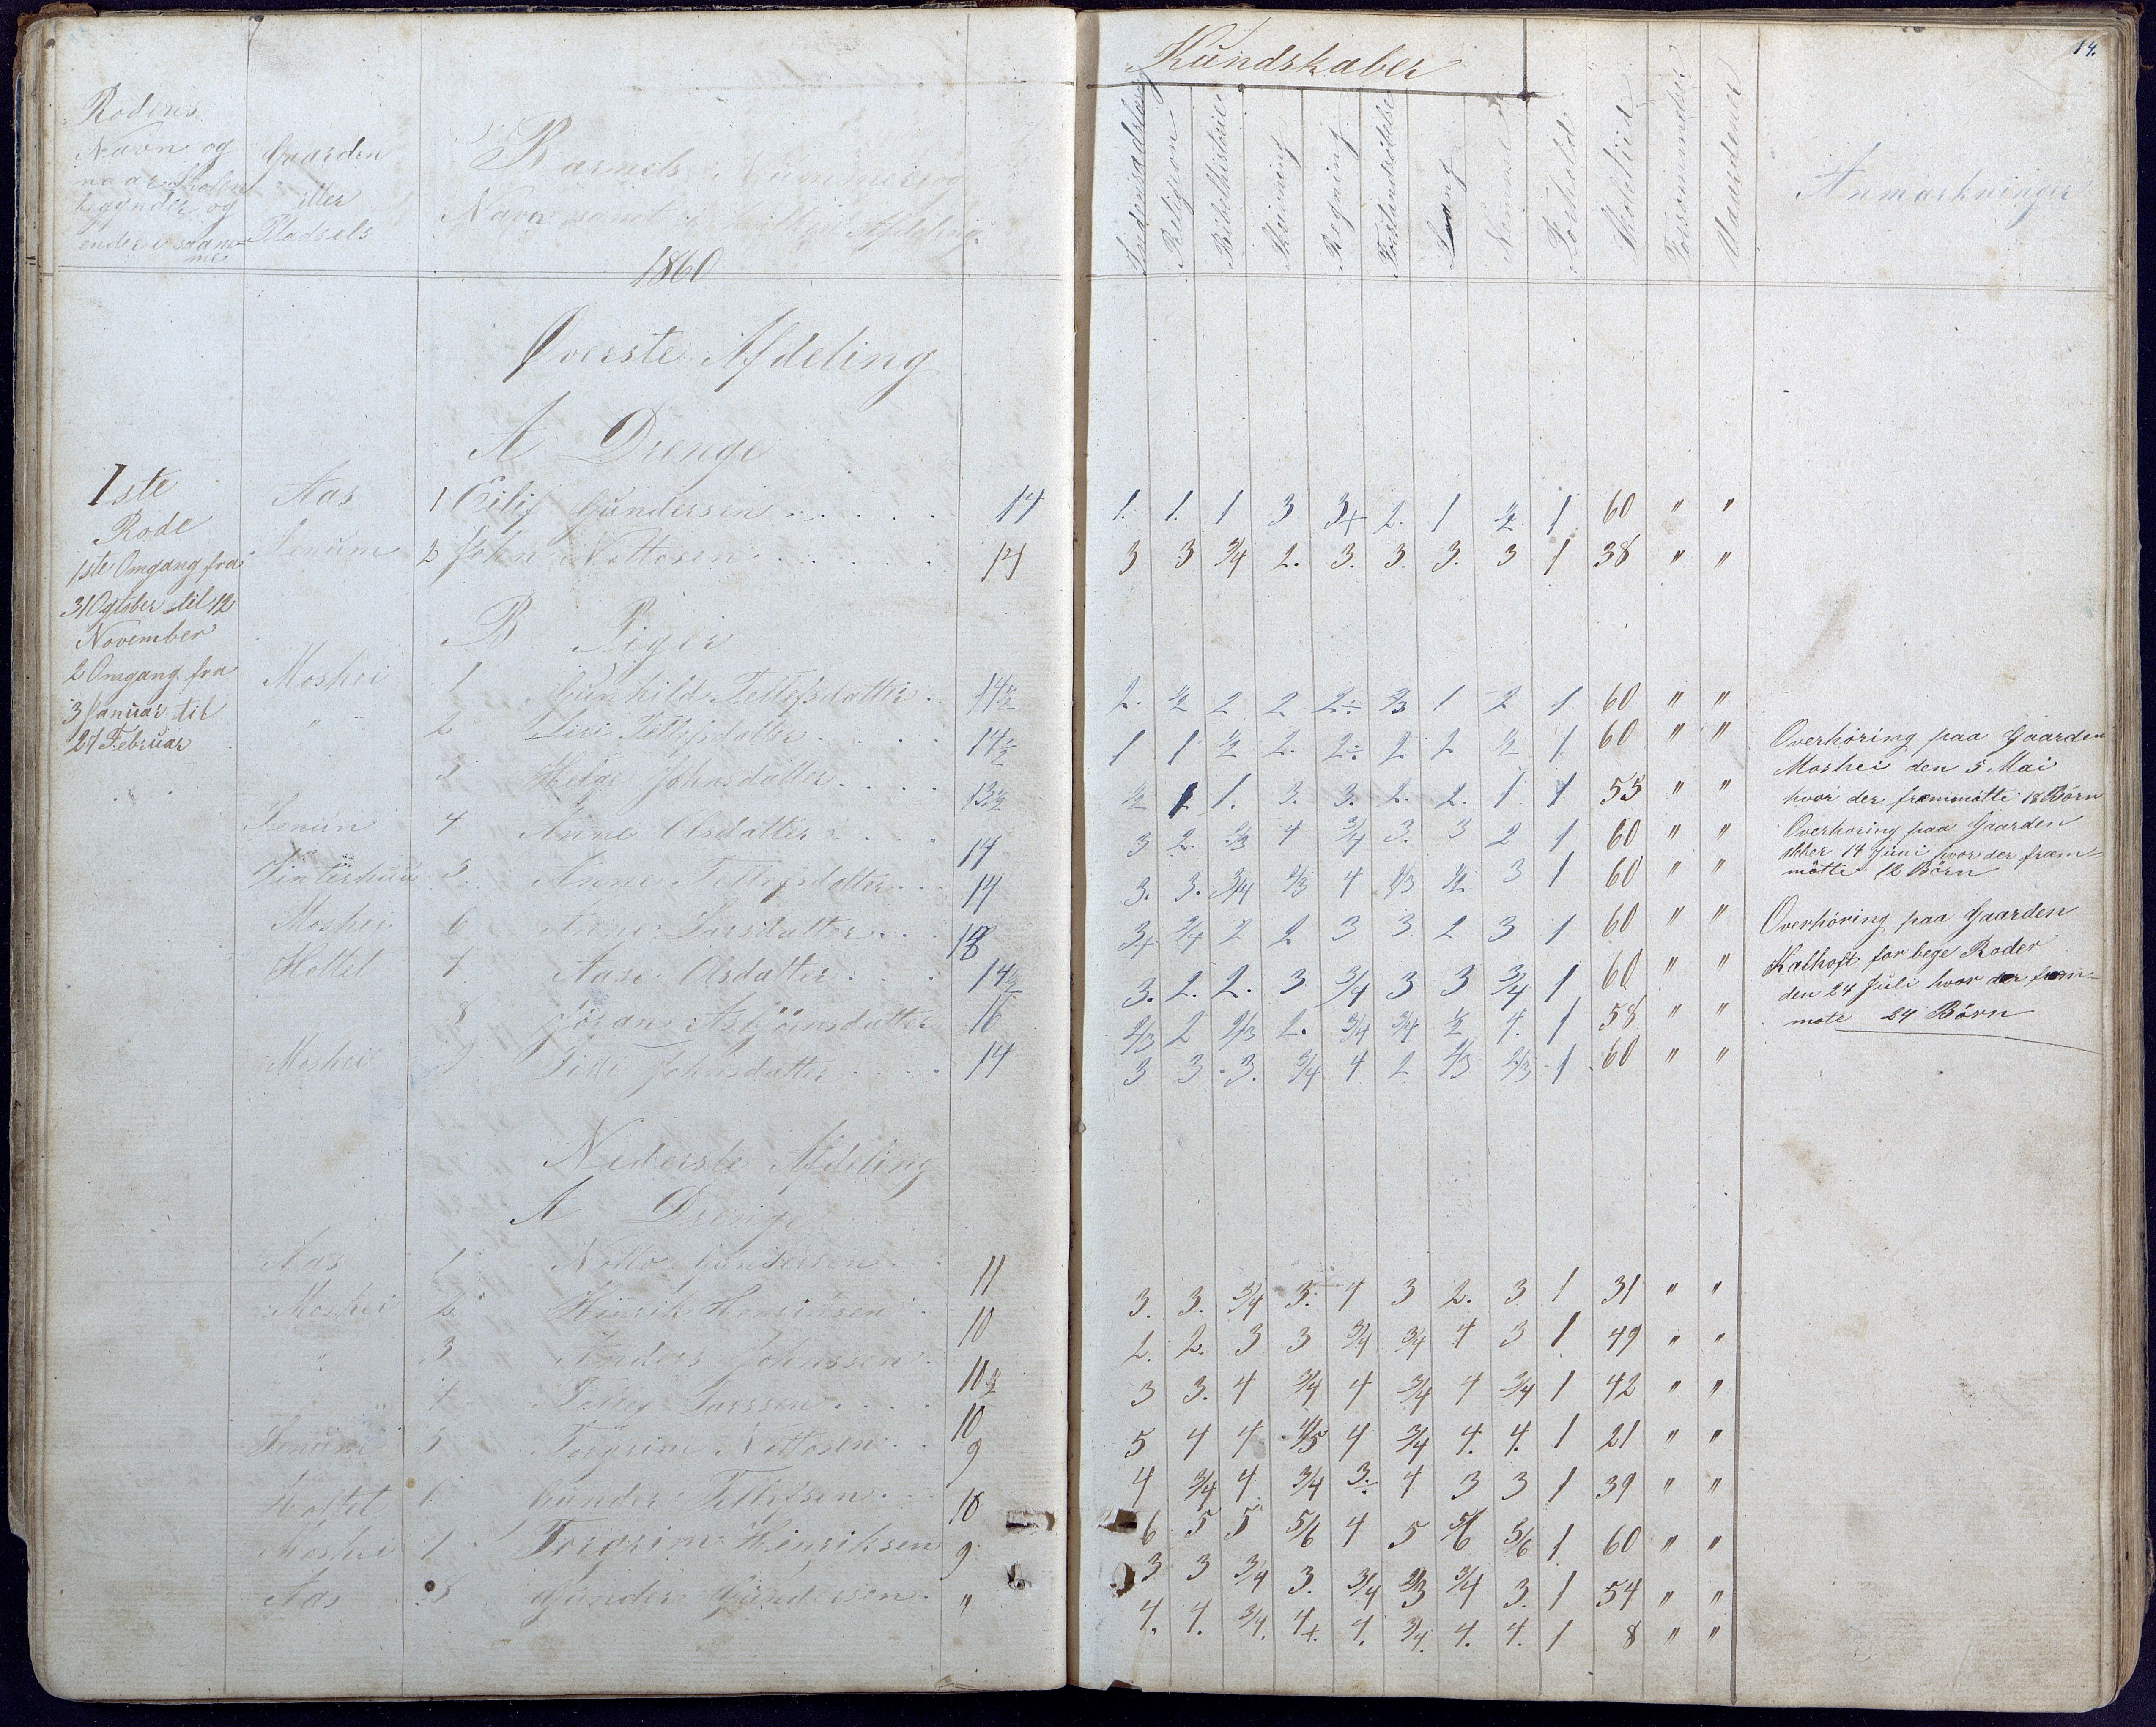 14.
Kundskaber
Rodens
Navn og
naar Skolen
begynder og
ender i samme
Gaarden
eller
Pladsels
Barnets Nummer og
Navn samt i hvilken Afdeling.
Indenadslæsning
Religion
Bibelhistorie
Skrivning
Regning
Forstandsøvelse
Sang
Forhold
Skoletiid
Forsømmelser
Anmærkninger
1860
Øverste Afdeling
A Drenge
1ste
Rode
1ste Omgang fra
31 October til 12
November
2 Omgang fra
3 Januar til
27 Februar
Aas 1 Eilif Gundersen 14 1. 1. 1 3 3+ 2. 1 1/2 1 60 " "
2 John Nottosen 14 3 3 3/4 2. 3. 3. 3. 3 1 38 " "
B Piger
Moshei 1 Gunhild Tellefsdatter 14½ 2. 1/2 2 2 2÷ 2/3 1 2 1 60 " "
" 2 Siri Tellefsdatter 14½ 1 1 1/2 2. 2÷ 2 2 1/2 1 60 " "
3 Helge Johnsdatter 13½ 1/2 1 1. 3. 3. 2. 2. 1 1 55 " "
4 Anne Olsdatter 14 3 2. 2/3 4 3/4 3. 3 2 1 60 " "
5 Anne Tellefsdatter 14 3. 3. 3/4 2/3 4 2/3 1/2 3 1 60 " "
Moshei 6 Larsdatter 3+ 3/4 2 2 3 3 2 3 1 60 " "
Holtet 7 Aase Olsdatter 14½ 3. 2. 2. 3 3/4 3 3 3/4 1 60 " "
8 Jøran Asbjörnsdatter 16 2/3 2 2/3 2. 3/4 3/4 1/2 4. 1 58 " "
Moshei 9 Siri Johnsdatter 14 3 3 3. 3/4 4 2 2/3 2/3 1 60 " "
Overhöring paa Gaarden
Moshei den 5 Mai
hvor der fremmötte 18 Börn
Overhöring paa Gaarden
14 Juni hvor der frem=
mötte 12 Börn
Overhöring paa Gaarden
for bege Roder
den 24 Juli hvor der frem=
møte 24 Börn
Nederste Afdeling
A Drenge
Aas 1 Notto Gundersen 11 3. 3. 3/4 3.÷ 4 3 2. 3 1 31 " "
Moshei 2 Hinrik Henriksen 10 2. 2. 3 3 3/4 3/4 4 3 1 49 " "
" 3 Anders Johnssen 10½ 3 3. 4 3/4 4 3/4 4 3/4 1 42 " "
4 Larssen 10 5 4 4 4/5 4 3/4 4. 4. 1 21 " "
5 Torgrim Nottosen 9 4 3/4 4 3/4 3÷ 4 3 3 1 39 " "
Holtet 6 Gunder Tellefsen 10 6 5 5 5/6 4 5 5/6 5/6 1 60 " "
Moshei 7 Torgrim Hinriksen 9 3 3 3/4 3. 3/4 2/3 3/4 3. 1 54 " "
Aas 8 Gunder Gundersen " 4. 4. 3/4. 4+. 4. 3/4. 4. 4. 1 8 " "